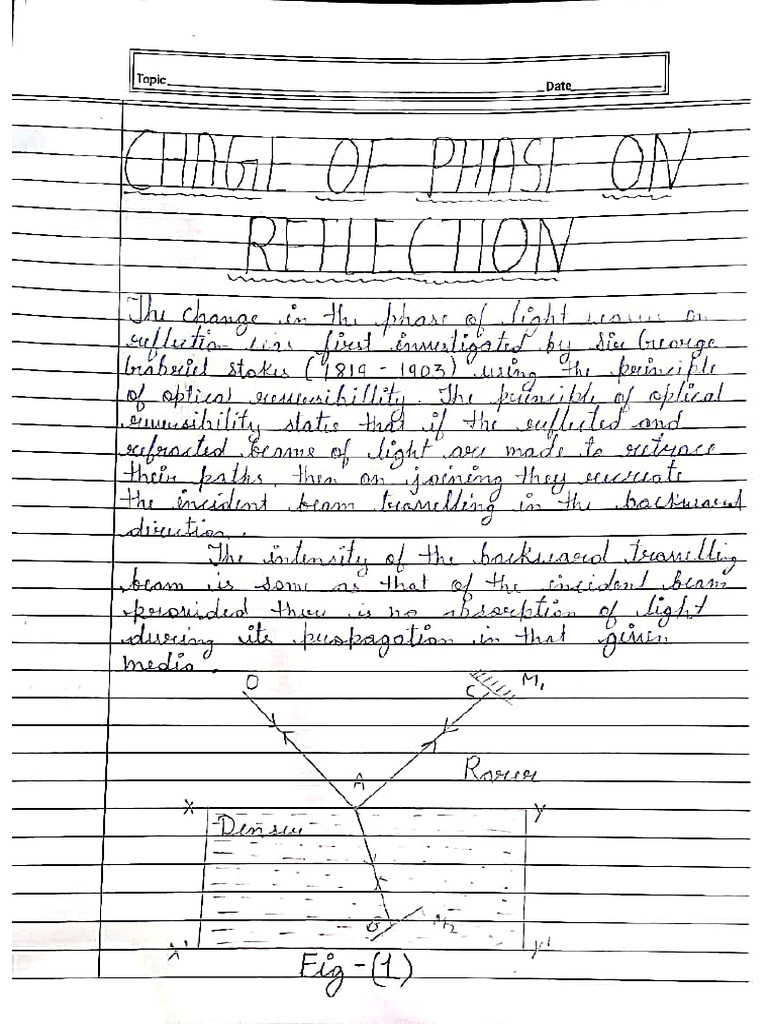 Topic Date
CHAGE OF PHASE ON
REFLECTION
The change in the phase of light waves on
reflection was first investigated by Sir George
Gabriel Stokes (1819 - 1903) using the principle
of optical reversibillity. The principle of optical
reversibility states that if the reflected and
refracted beams of light are made to retrace
their paths, then on joining they recreate
the incident beam travelling in the backward
direction.
The intensity of the backward travelling
beam is same as that of the incident beam
provided there is no absorption of light
during its propagation in that given
media.
O C M1
A Rarer
X Y
Denser
B M2
X' Y'
Fig-(1)